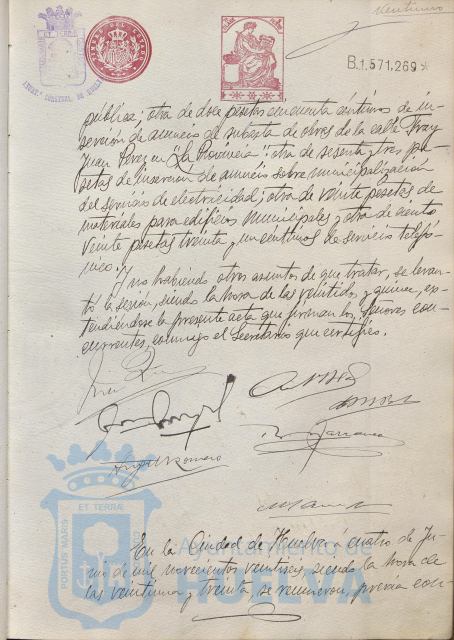 veintiuno
B.1.571,269
pública; otra de doce pesetas cincuenta céntimos de in-
serción de anuncio de subasta de obras de la calle Fray
Juan Perez en "La Provincia"; otra de sesenta y tres pe-
setas de inserción de anuncio sobre municipalización
del servicio de electricidad; otra de veinte pesetas de
materiales para edificios municipales y otra de ciento
veinte pesetas treinta y un céntimos de servicio telefó-
nico.
Y no habiendo otros asuntos de que tratar, se levan-
tó la sesión, siendo la hora de las veintidos y quince, ex-
tendiéndose la presente acta que firman los Señores con-
currentes, conmigo el Secretario que certifico.
Angel Romero
En la Ciudad de Huelva á cuatro de Ju-
nio de mil novecientos veintiseis, siendo la hora de
las veintiuna y treinta, se reunieron, previa con-
ET TERRÆ
PORTUS MARIS
CUSTODIA
Ayuntamiento de
HUELVA